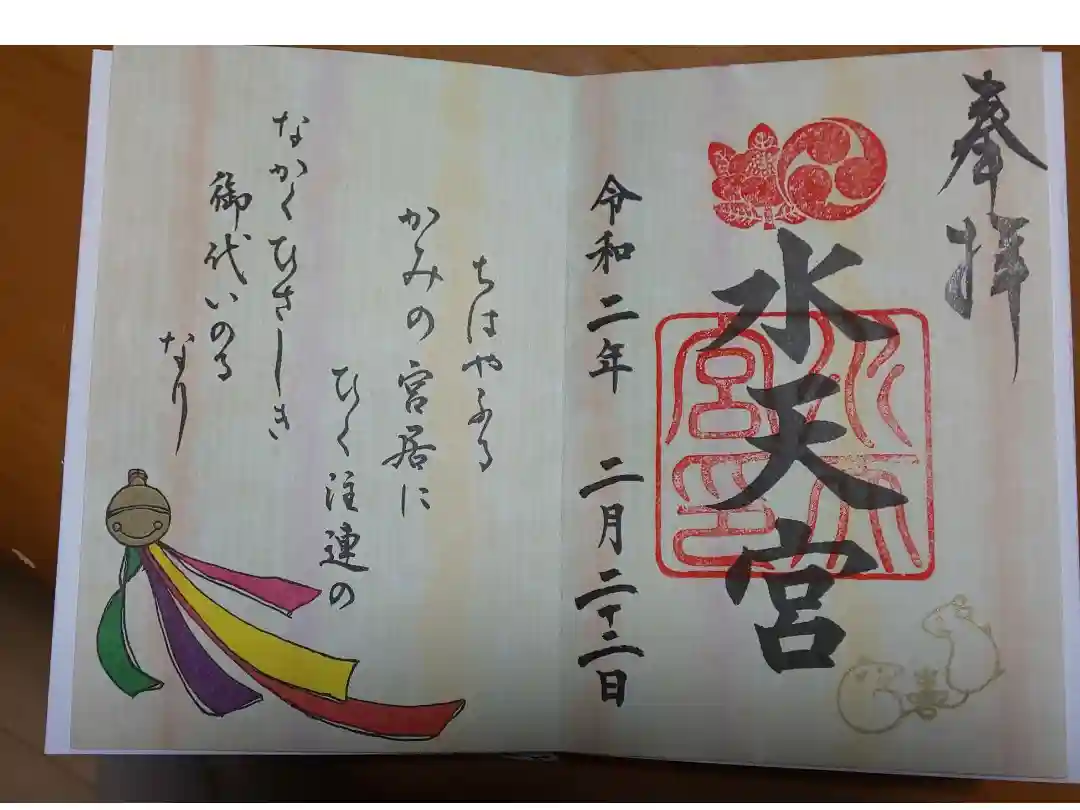 奉拝
水天宮
宮印
令和二年 二月二十二日
ちはやふる
かみの宮居に
ひく注連の
なかくひさしき
御代いのる
なり